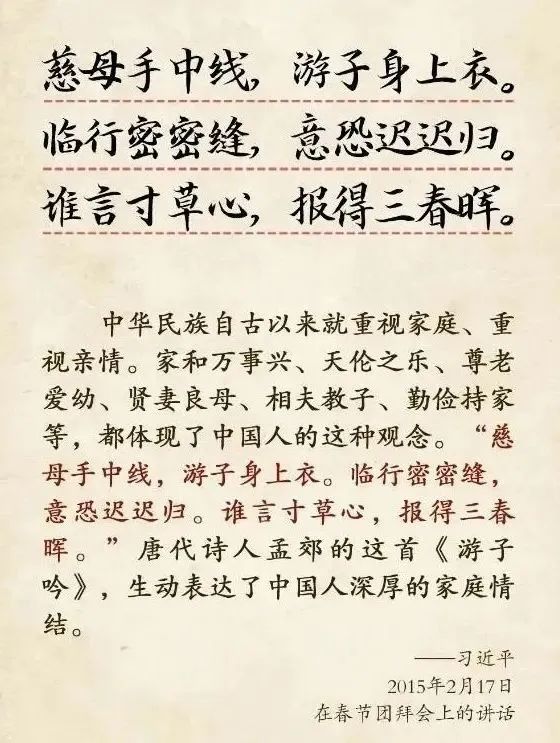 慈母手中线，游子身上衣。
临行密密缝，意恐迟迟归。
谁言寸草心，报得三春晖。
中华民族自古以来就重视家庭、重
视亲情。家和万事兴、天伦之乐、尊老
爱幼、贤妻良母、相夫教子、勤俭持家
等，都体现了中国人的这种观念。“慈
母手中线，游子身上衣。临行密密缝，
意恐迟迟归。谁言寸草心，报得三春
晖。”唐代诗人孟郊的这首《游子
吟》，生动表达了中国人深厚的家庭情
结。
——习近平
2015年2月17日
在春节团拜会上的讲话